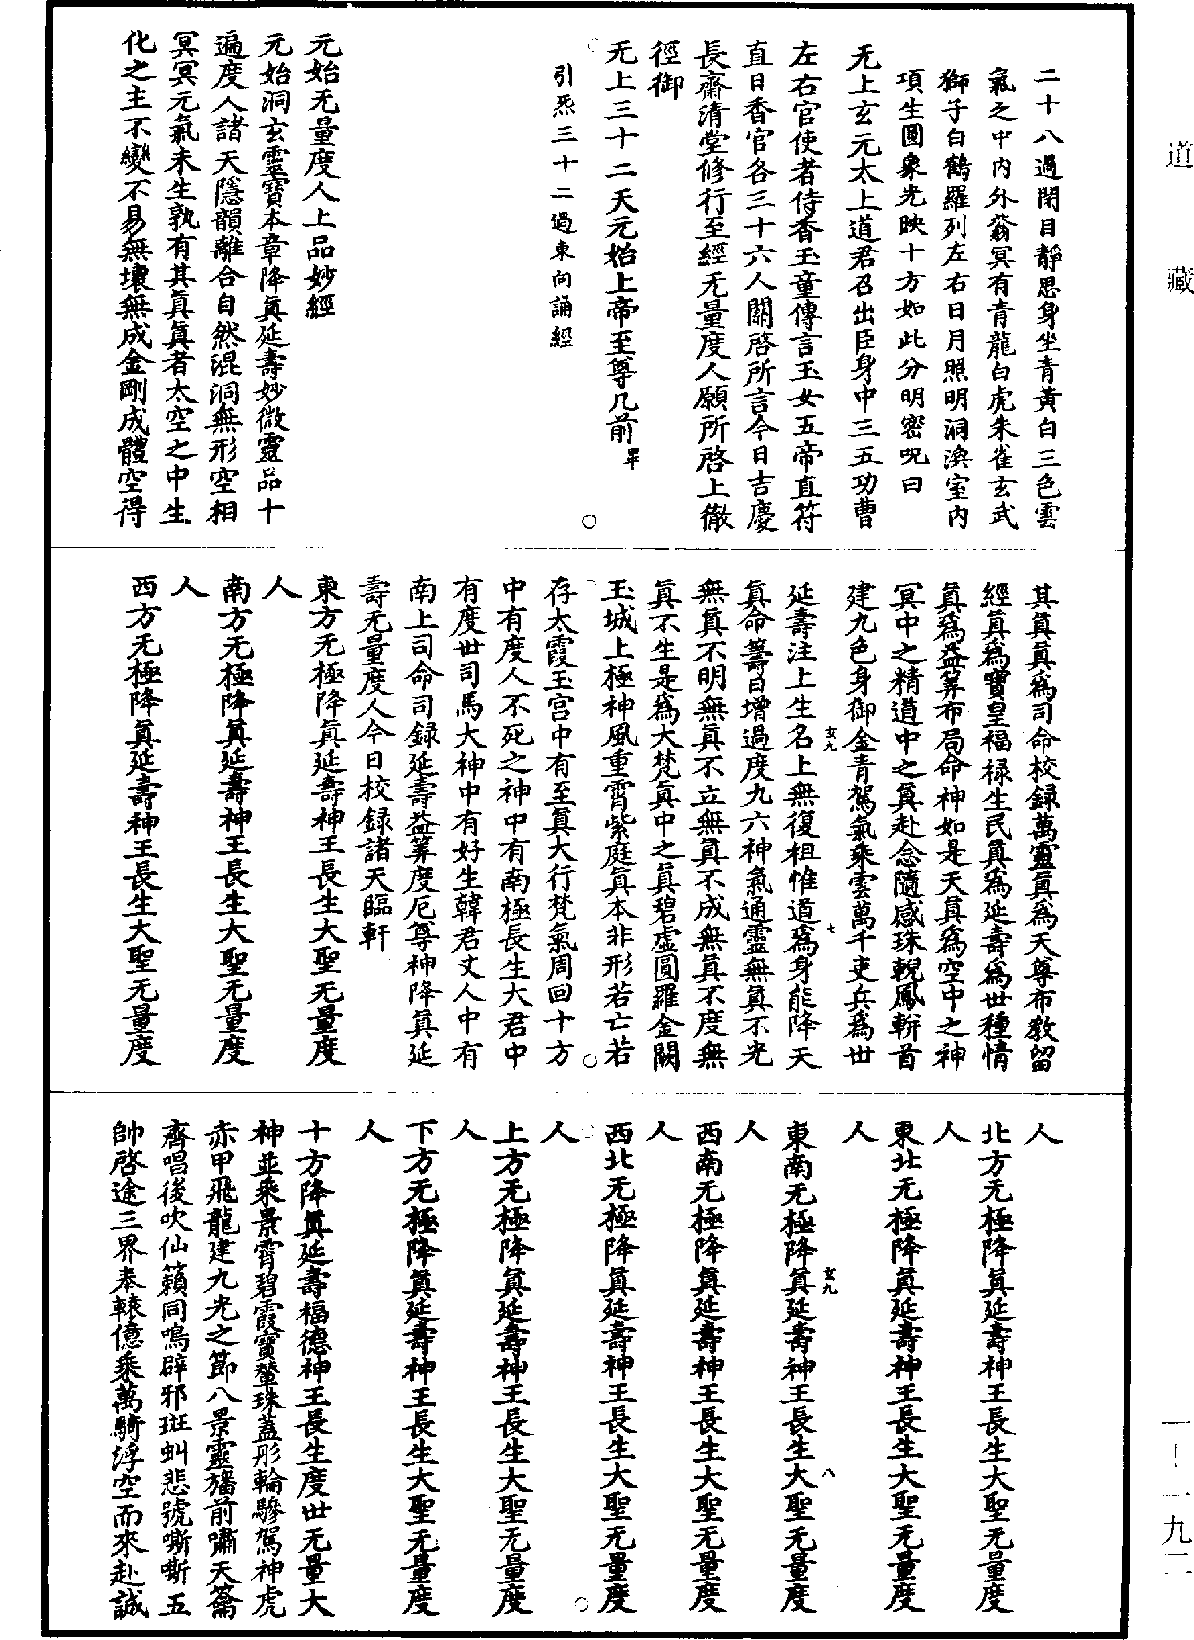 道藏
二十八過閉目靜思身坐青黃白三色雲
氣之中內外蓊冥有青龍白虎朱雀玄武
獅子白鶴羅列左右日月照明洞渙室內
項生圓象光映十方如此分明密呪曰
无上玄元太上道君召出臣身中三五功曹
左右官使者侍香玉童傳言玉女五帝直符
直日香官各三十六人關啓所言今日吉慶
長齋清堂修行至經无量度人願所啓上徹
徑御
无上三十二天元始上帝至尊几前畢
引炁三十二過東向誦經
元始无量度人上品妙經
元始洞玄靈寶本章降眞延壽妙微靈品十
遍度人諸天隱韻離合自然混洞無形空相
冥冥元氣未生孰有其眞眞者太空之中生
化之主不變不易無壞無成金剛成體空得
其眞眞爲司命校録萬靈眞爲天尊布教留
經眞爲寶皇福禄生民眞爲延壽爲世種情
眞爲益筭布局命神如是天眞爲空中之神
冥中之精道中之眞赴念隨感珠輗鳳軿首
建九色身御金青駕氣乘雲萬千吏兵爲世
延壽注上生名上無復祖惟道爲身能降天
玄九
七
眞命籌自增過度九六神氣通靈無眞不光
無眞不明無眞不立無眞不成無眞不度無
眞不生是爲大梵眞中之眞碧虛圓羅金闕
玉城上極神風重霄紫庭眞本非形若亡若
存太霞玉宫中有至眞大行梵氣周回十方
中有度人不死之神中有南極長生大君中
有度世司馬大神中有好生韓君丈人中有
南上司命司録延壽益筭度厄尊神降眞延
壽无量度人今日校録諸天臨軒
東方无極降眞延壽神王長生大聖无量度
人
南方无極降眞延壽神王長生大聖无量度
人
西方无極降眞延壽神王長生大聖无量度
人
北方无極降眞延壽神王長生大聖无量度
人
東北无極降眞延壽神王長生大聖无量度
人
東南无極降眞延壽神王長生大聖无量度
玄九
八
人
西南无極降眞延壽神王長生大聖无量度
人
西北无極降眞延壽神王長生大聖无量度
人
上方无極降眞延壽神王長生大聖无量度
人
下方无極降眞延壽神王長生大聖无量度
人
十方降眞延壽福德神王長生度世无量大
神並乘景霄碧霞寶輦珠蓋形輪驂駕神虎
赤甲飛龍建九光之節八景靈旛前嘯天籥
齊唱後吹仙籟同鳴辟邪斑虬悲號嘶嘶五
帥啓途三界奉轅億乘萬騎浮空而來赴誠
一-一九二